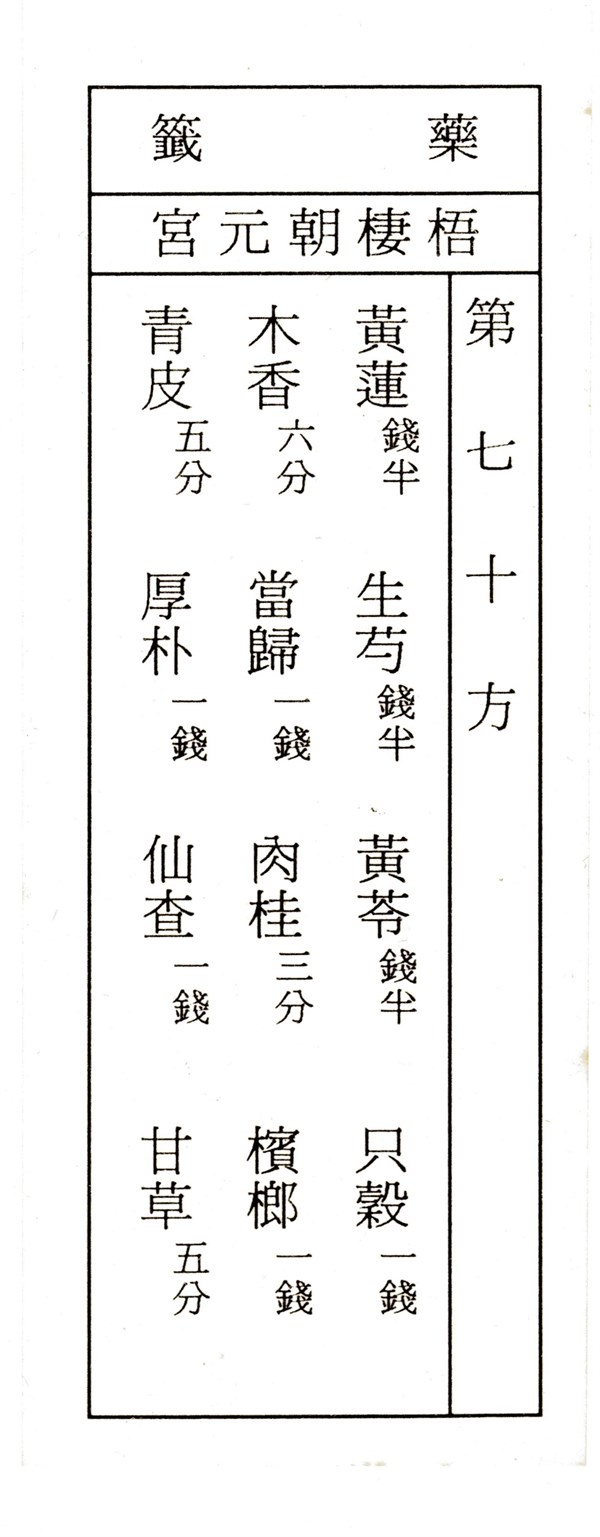 藥籤
梧棲朝元宮
第七十方
黃蓮錢半 生芍錢半 黃苓錢半 只穀一錢
木香六分 當歸一錢 肉桂三分 檳榔一錢
青皮五分 厚朴一錢 仙查一錢 甘草五分